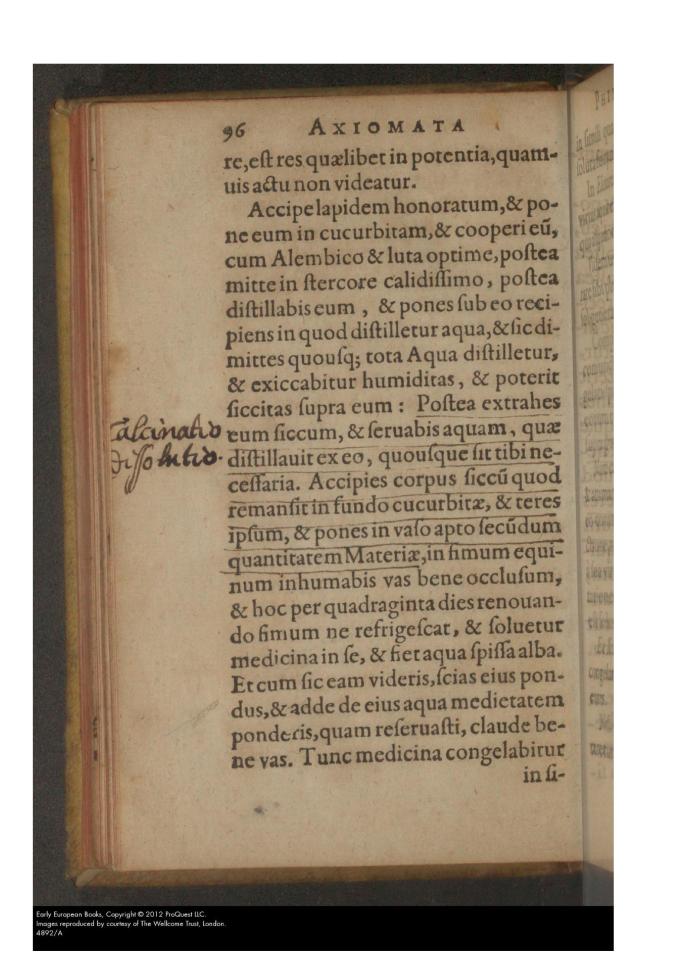 96 AXIOMATA
re, eſt res quælibet in potentia, quam-
uis actu non videatur.
Accipe lapidem honoratum, & po-
ne eum in cucurbitam, & cooperi eū,
cum Alembico & luta optime, poſtea
mitte in ſtercore calidiſſimo, poſtea
diſtillabis eum, & pones ſub eo reci-
piens in quod diſtilletur aqua, & ſic di-
mittes quouſq; tota Aqua diſtilletur,
& exiccabitur humiditas, & poterit
ſiccitas ſupra eum: Poſtea extrahes
eum ſiccum, & ſeruabis aquam, quæ
diſtillauit ex eo, quouſque ſit tibi ne-
ceſſaria. Accipies corpus ſiccū quod
remanſit in fundo cucurbitæ, & teres
ipſum, & pones in vaſo apto ſecūdum
quantitatem Materiæ, in fimum equi-
num inhumabis vas bene occluſum,
& hoc per quadraginta dies renouan-
do fimum ne refrigeſcat, & ſoluetur
medicina in ſe, & fiet aqua ſpiſſa alba.
Et cum ſic eam videris, ſcias eius pon-
dus, & adde de eius aqua medietatem
ponderis, quam reſeruaſti, claude be-
ne vas. Tunc medicina congelabitur
in ſi-
Calcinatio
Diſſolutio.
Early European Books, Copyright © 2012 ProQuest LLC.
Images reproduced by courtesy of The Wellcome Trust, London.
4892/A